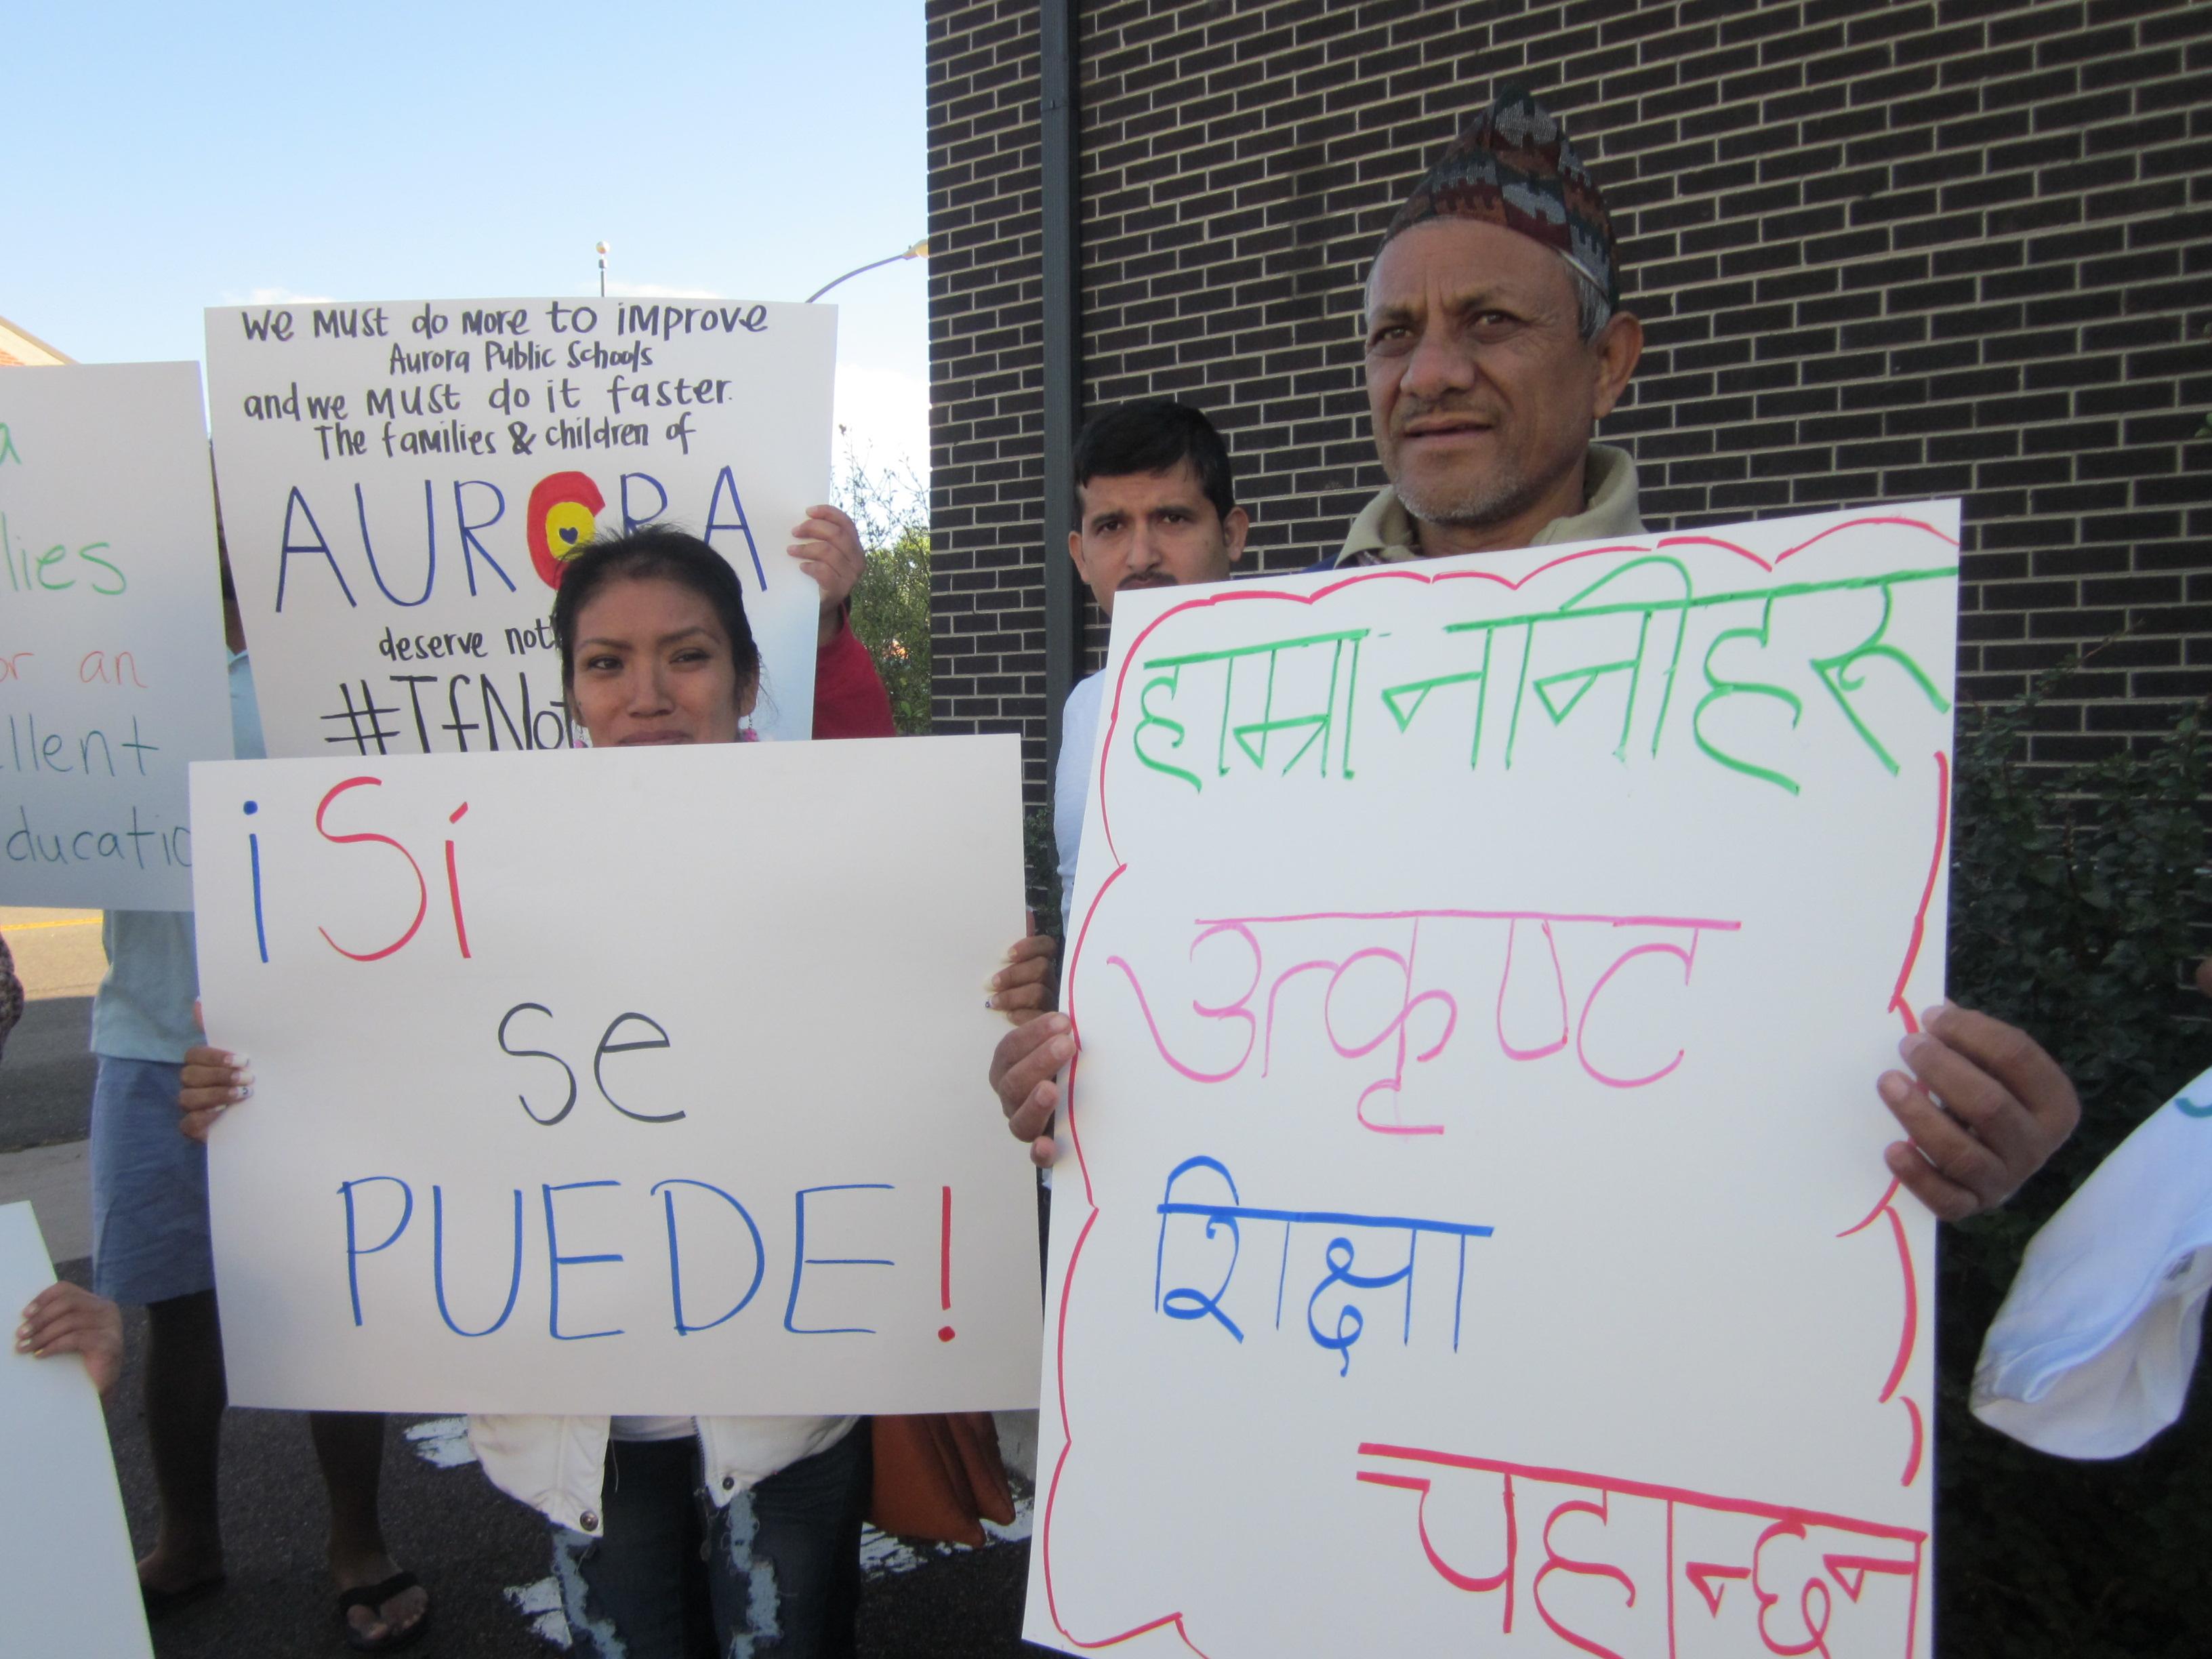 lies
an
ducatio
we must do more to improve
Aurora Public Schools
and we must do it faster.
The families & children of
AURORA
deserve
¡Sí
se
PUEDE!
हाम्रा नानीहरू
उत्कृष्ट
शिक्षा
चहान्छन